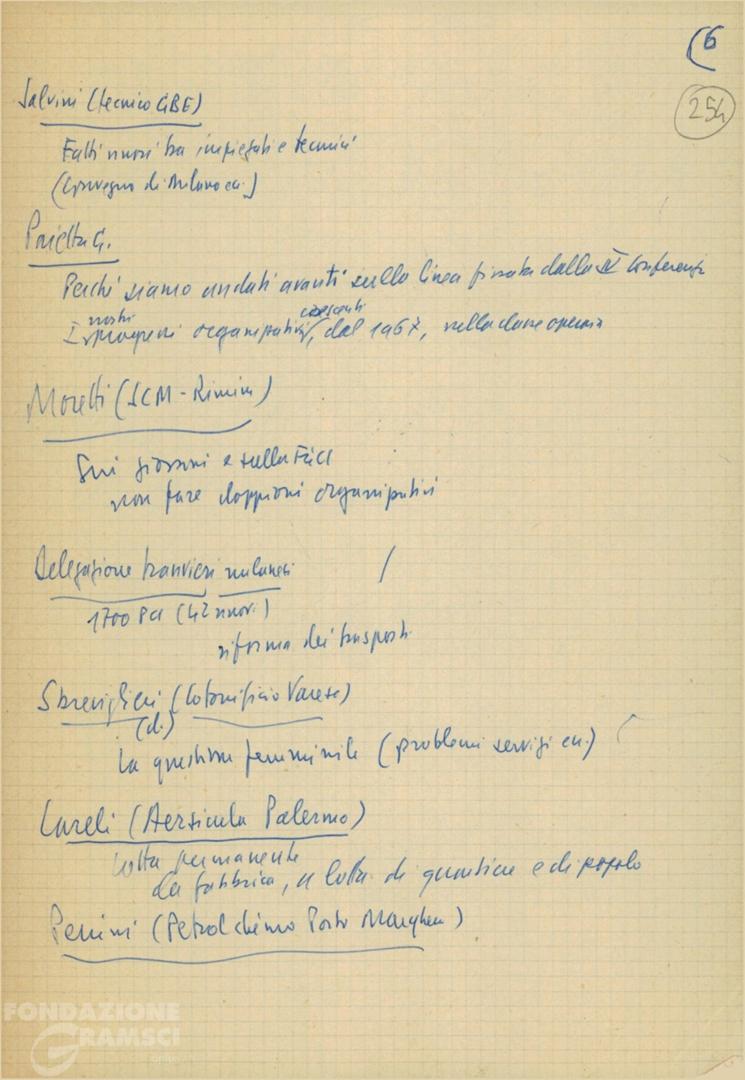 (6
254
Salvini (tecnico GBE)
Fatti nuovi tra impiegati e tecnici
(Convegno di Milano ecc.)
Pajetta G.
Perché siamo andati avanti sulla linea fissata dalla Conferenza
I nostri progressi organizzativi, crescenti dal 1967, nella classe operaia
Moretti (SCM - Rimini)
Sui giovani e sulla FGCI
non fare doppioni organizzativi
Delegazione tranvieri milanesi
1700 PCI (42 nuovi)
riforma dei trasporti
Sbreviglieri (Cotonificio Varese)
(d.)
La questione femminile (problemi servizi ecc.)
Careli (Aersicula Palermo)
Lotta permanente
da fabbrica, a lotta di quartiere e di popolo
Perini (Petrolchimo Porto Marghera)
FONDAZIONE
GRAMSCI
onlus